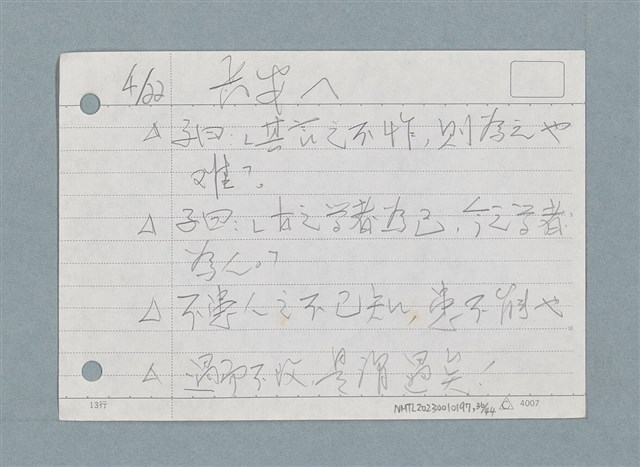 4/22 長安人
△ 子曰:「其言之不怍,則為之也
难」。
△ 子曰:「古之学者為己,今之学者
為人。」
△ 不患人之不己知,患不能也。
△ 過而不改,是謂過矣!
13行 NMTL20230010197,36/64 4007